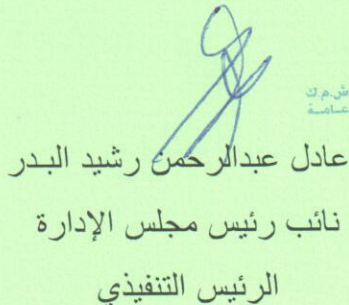 ش.م.ك
عامة
عادل عبدالرحمن رشيد البدر
نائب رئيس مجلس الإدارة
الرئيس التنفيذي